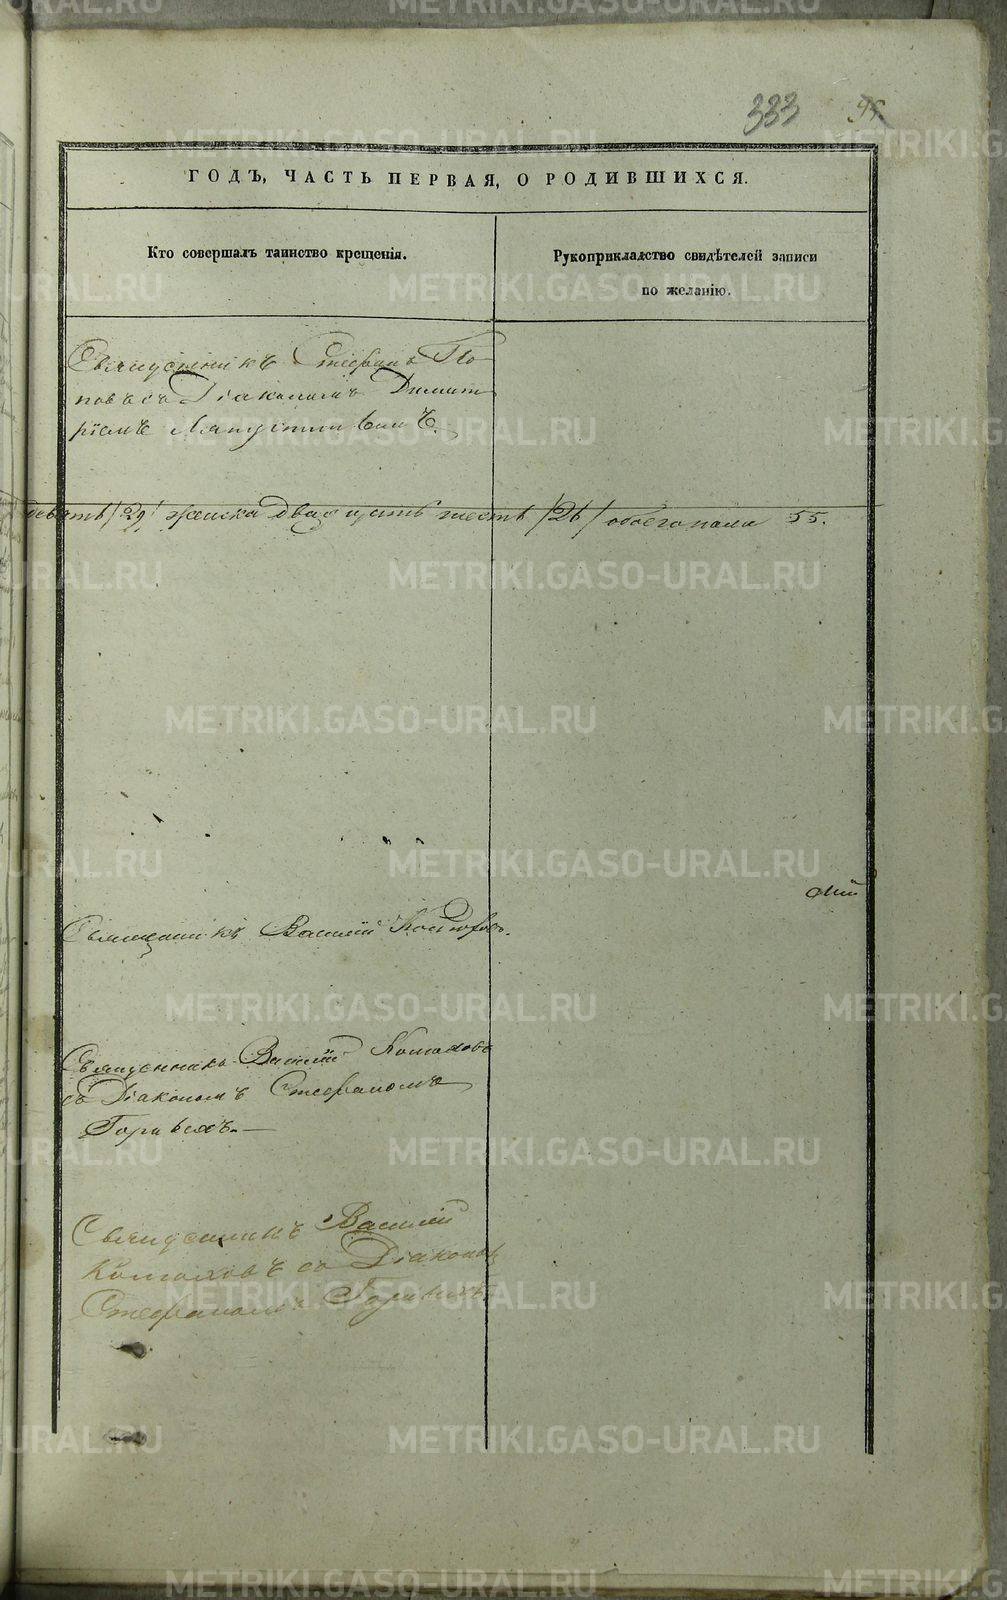 333
ГОДЪ, ЧАСТЬ ПЕРВАЯ, О РОДИВШИХСЯ.
Кто совершалъ таинство крещенія.
Рукоприкладство свидѣтелей записи
по желанію.
Священникъ Стефанъ По-
повъ съ Діакономъ Димит
ріемъ
девять /29/ женска двадцать шесть /26/ обоего пола 55.
Священникъ Василій
Священникъ Василій Комаховъ
съ Діакономъ Стефаномъ
Горныхъ.
Священникъ Василій
Комаховъ со Діаконом
Стефаномъ Горныхъ
METRIKI.GASO-URAL.RU